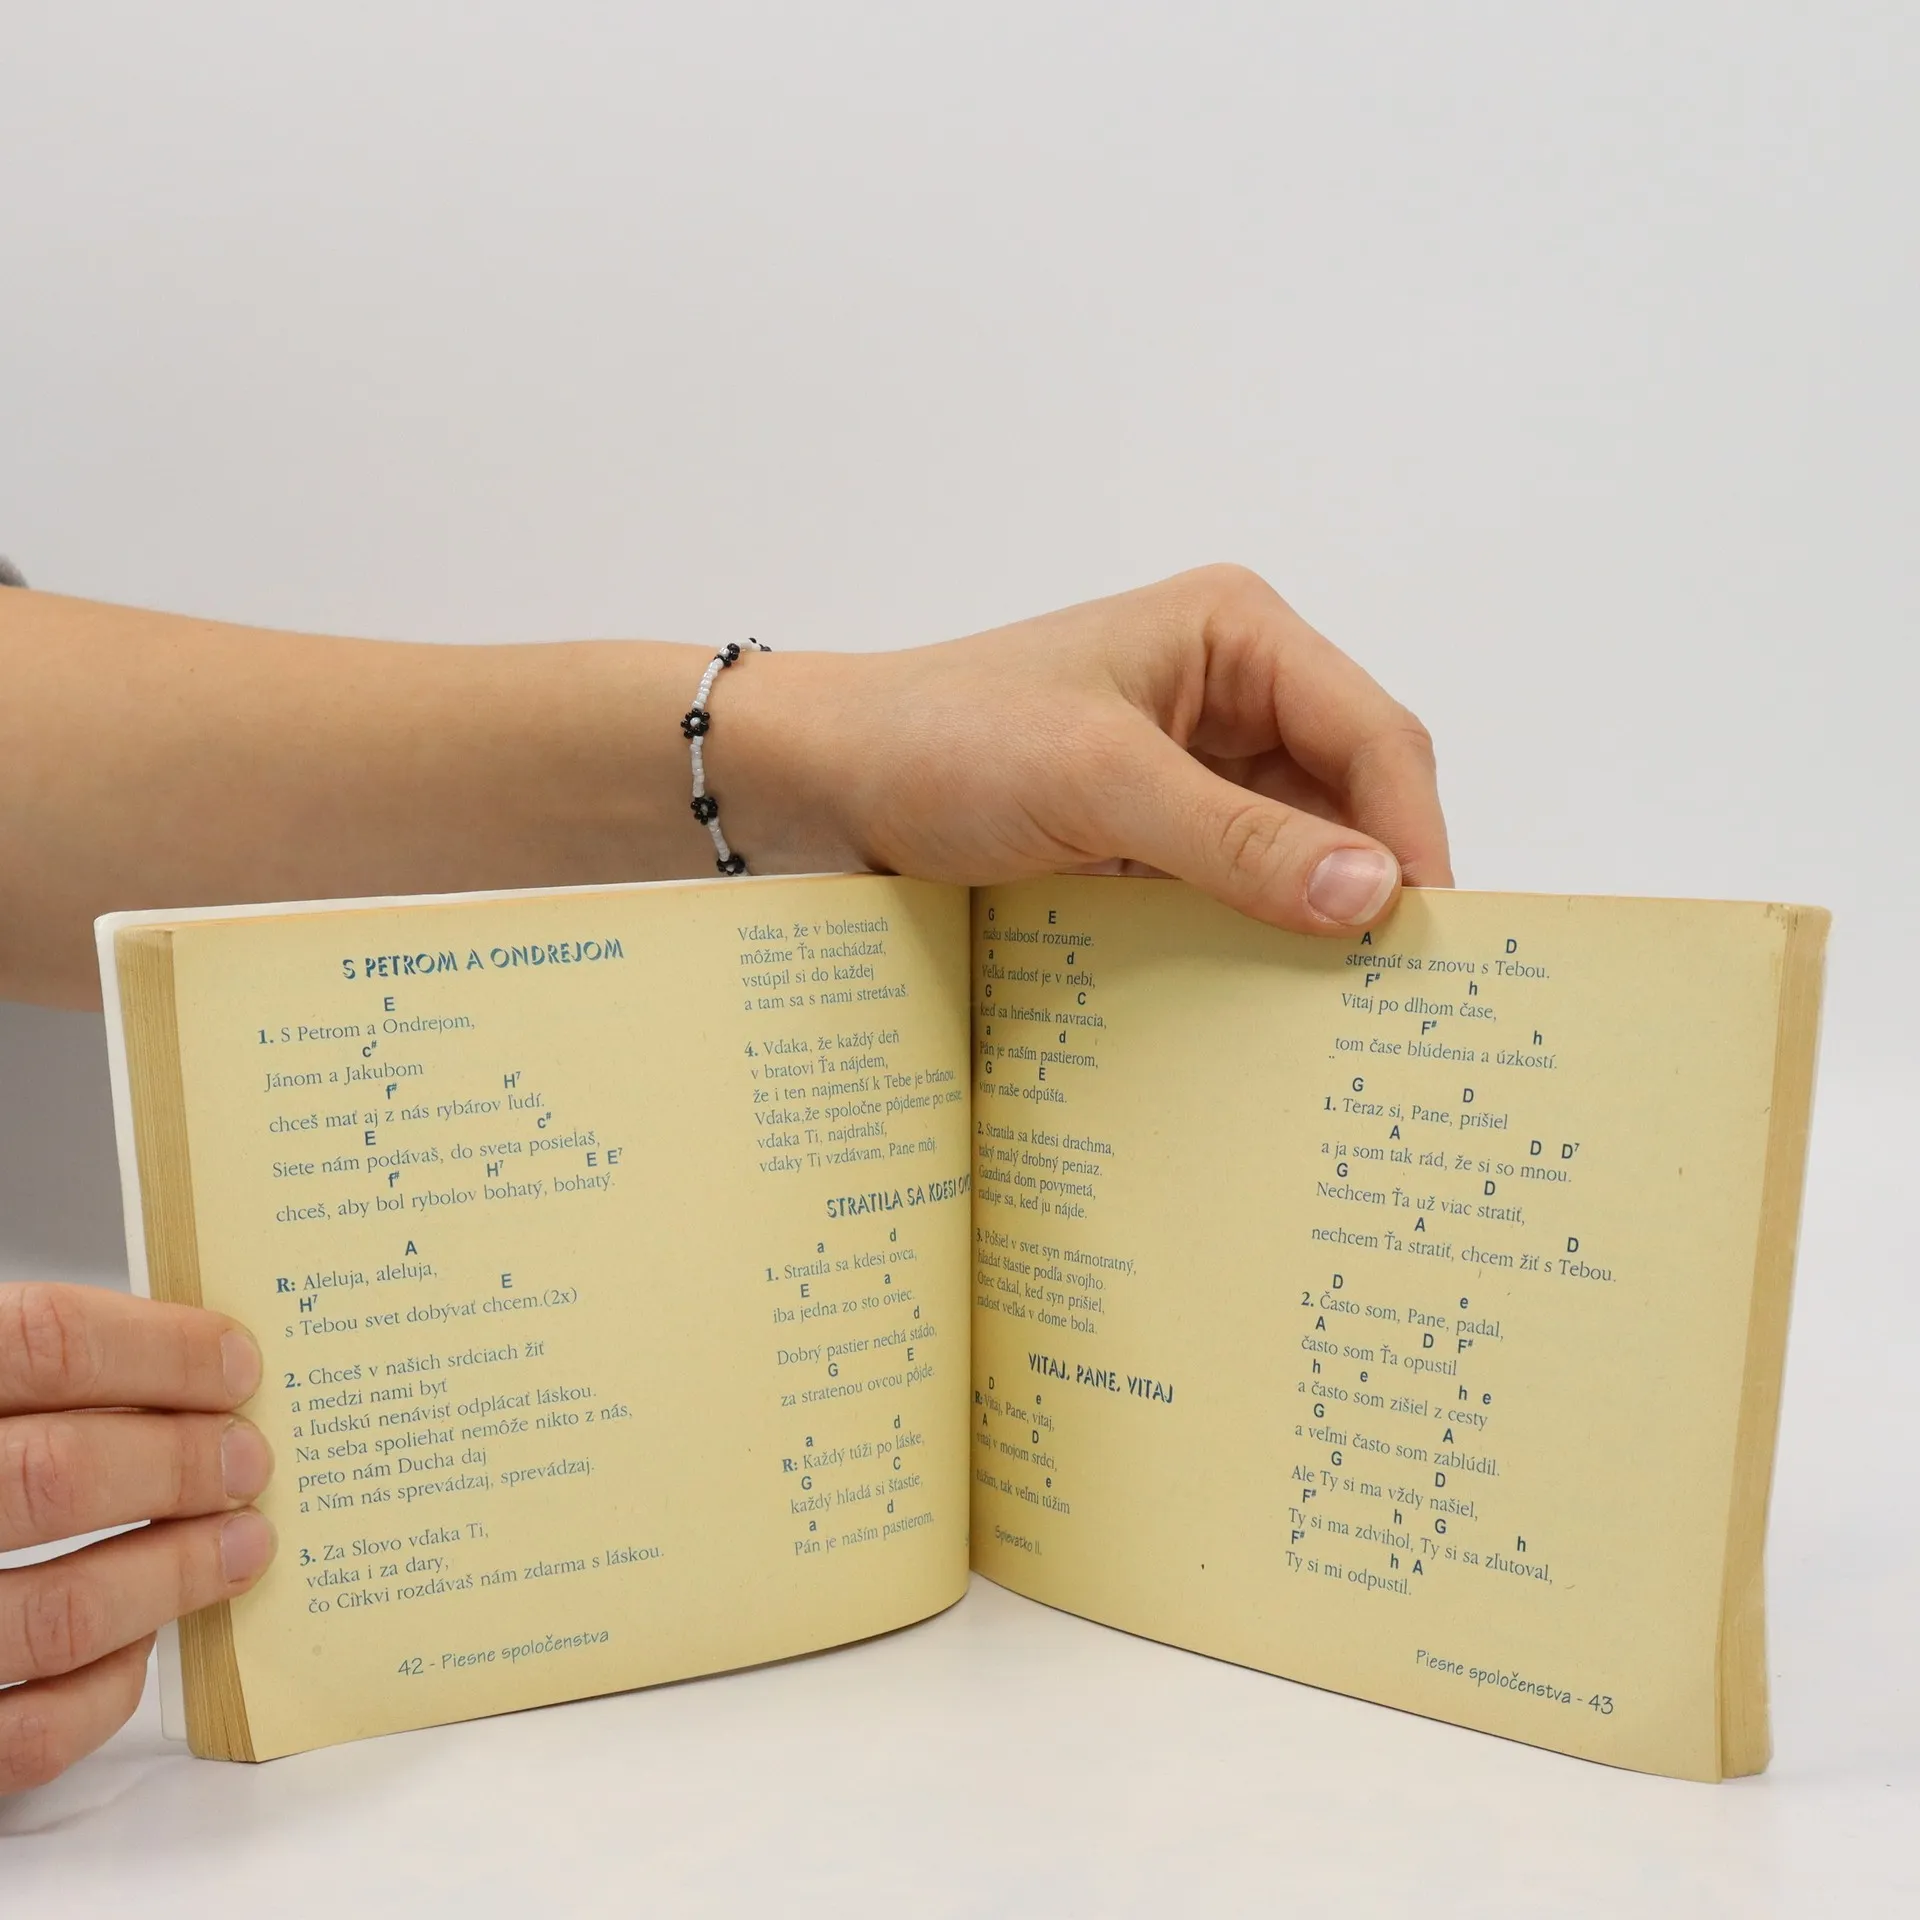 S PETROM A ONDREJOM
E
1. S Petrom a Ondrejom,
c#
Jánom a Jakubom
f# H7
chceš mať aj z nás rybárov ľudí.
E c#
Siete nám podávaš, do sveta posielaš,
f# H7 E E7
chceš, aby bol rybolov bohatý, bohatý.
A
R: Aleluja, aleluja,
H7 E
s Tebou svet dobývať chcem.(2x)
2. Chceš v našich srdciach žiť
a medzi nami byť
a ľudskú nenávisť odplácať láskou.
Na seba spoliehať nemôže nikto z nás,
preto nám Ducha daj
a Ním nás sprevádzaj, sprevádzaj.
3. Za Slovo vďaka Ti,
vďaka i za dary,
čo Cirkvi rozdávaš nám zdarma s láskou.
42 - Piesne spoločenstva
Vďaka, že v bolestiach
môžme Ťa nachádzať,
vstúpil si do každej
a tam sa s nami stretávaš.
4. Vďaka, že každý deň
v bratovi Ťa nájdem,
že i ten najmenší k Tebe je bránou.
Vďaka,že spoločne pôjdeme po ceste
vďaka Ti, najdrahší,
vďaky Ti vzdávam, Pane môj.
STRATILA SA KDESI
a d
1. Stratila sa kdesi ovca,
E a
iba jedna zo sto oviec.
d
Dobrý pastier nechá stádo,
G E
za stratenou ovcou pôjde.
a d
R: Každý túži po láske,
G C
každý hľadá si šťastie,
a d
Pán je naším pastierom,
G E
našu slabosť rozumie.
a d
Veľká radosť je v nebi,
G C
keď sa hriešnik navracia,
a d
Pán je naším pastierom,
G E
viny naše odpúšťa.
2. Stratila sa kdesi drachma,
taký malý drobný peniaz.
Gazdiná dom povymetá,
raduje sa, keď ju nájde.
3. Pošiel v svet syn márnotratný,
hľadať šťastie podľa svojho.
Otec čakal, keď syn prišiel,
radosť veľká v dome bola.
VITAJ, PANE, VITAJ
D e
R: Vitaj, Pane, vitaj,
A D
vitaj v mojom srdci,
e
túžim, tak veľmi túžim
Spievatko II.
A D
stretnúť sa znovu s Tebou.
F# h
Vitaj po dlhom čase,
F# h
tom čase blúdenia a úzkostí.
G D
1. Teraz si, Pane, prišiel
A D D7
a ja som tak rád, že si so mnou.
G D
Nechcem Ťa už viac stratiť,
A D
nechcem Ťa stratiť, chcem žiť s Tebou.
D e
2. Často som, Pane, padal,
A D F#
často som Ťa opustil
h e h e
a často som zišiel z cesty
G A
a veľmi často som zablúdil.
G D
Ale Ty si ma vždy našiel,
F# h G h
Ty si ma zdvihol, Ty si sa zľutoval,
F# h A
Ty si mi odpustil.
Piesne spoločenstva - 43